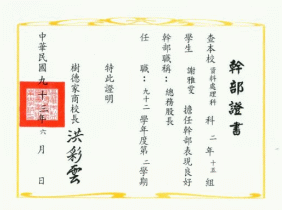 幹部證書
查本校 資料處理科 科 二 年 十五 組
學生 謝雅雯 擔任幹部表現良好
幹部職稱：總務股長
任 職：九十二 學年度第 二 學期
特此證明
樹德家商校長 洪彩雲
中華民國 九十三 年 六 月 日